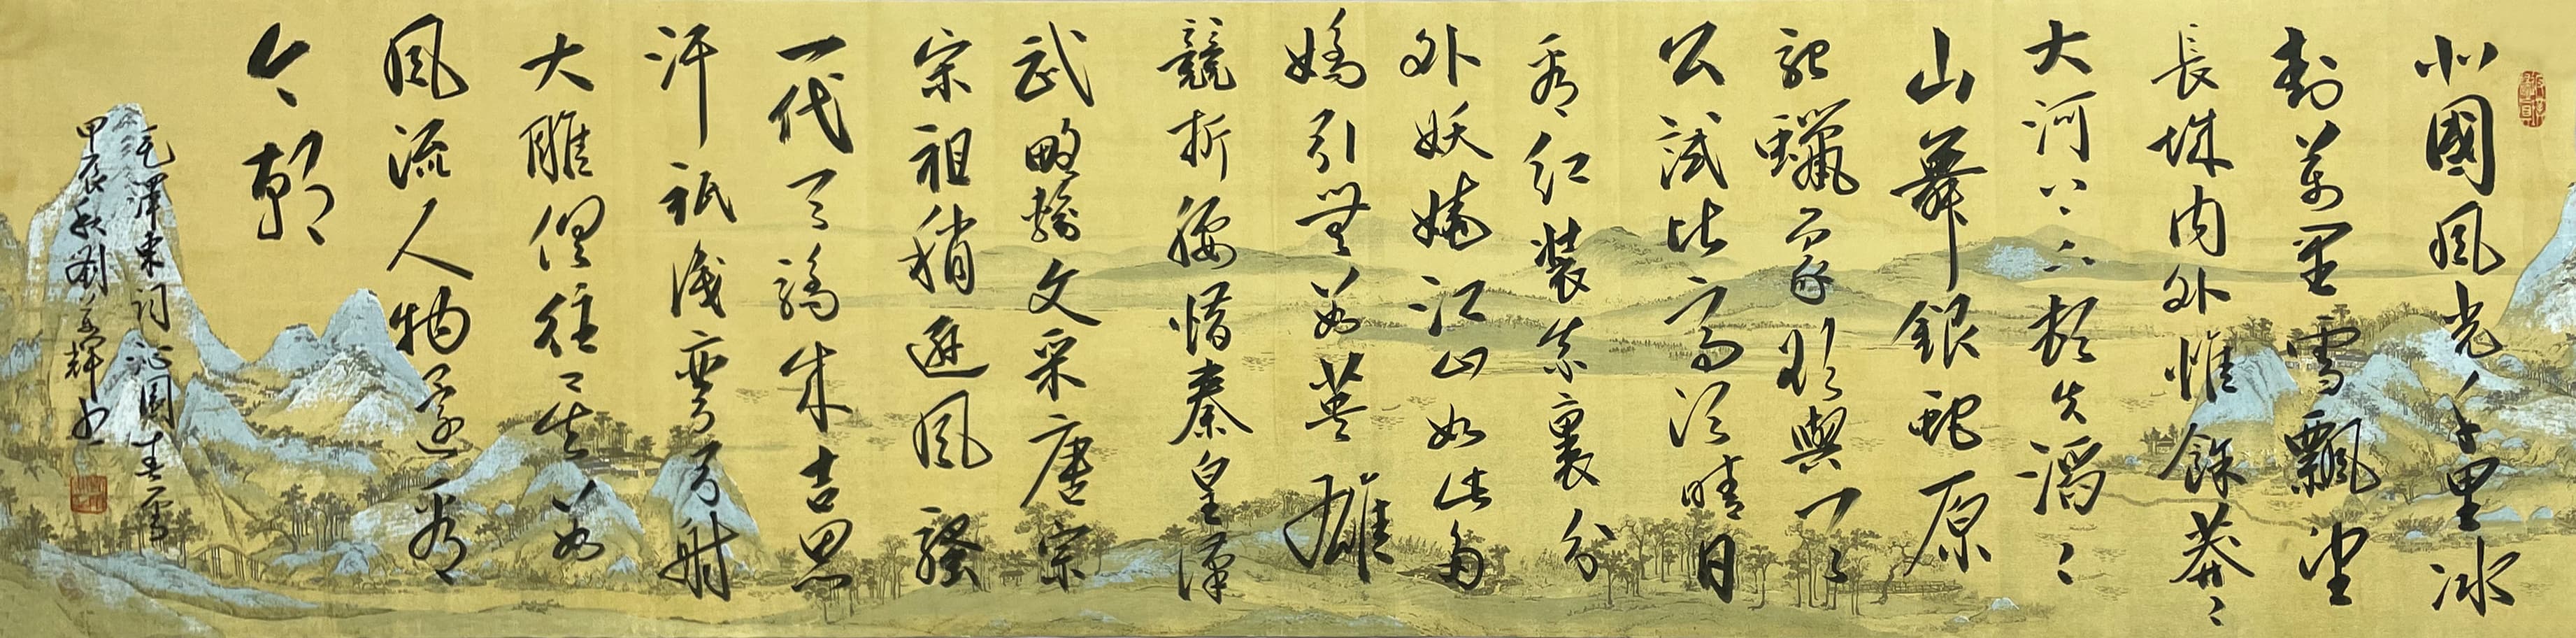 北國風光千里冰
封萬里雪飄望
長城内外惟餘莽〻
大河上下頓失滔〻
山舞銀蛇原
馳蠟象欲與天
公試比高須晴日
看紅裝素裹分
外妖嬈江山如此多
嬌引無數英雄
競折腰惜秦皇漢
武略輸文采唐宗
宋祖稍遜風騷
一代天驕成吉思
汗祇識彎弓射
大雕俱往矣數
風流人物還看
今朝
毛澤東詞沁園春雪
甲辰秋劉輝書